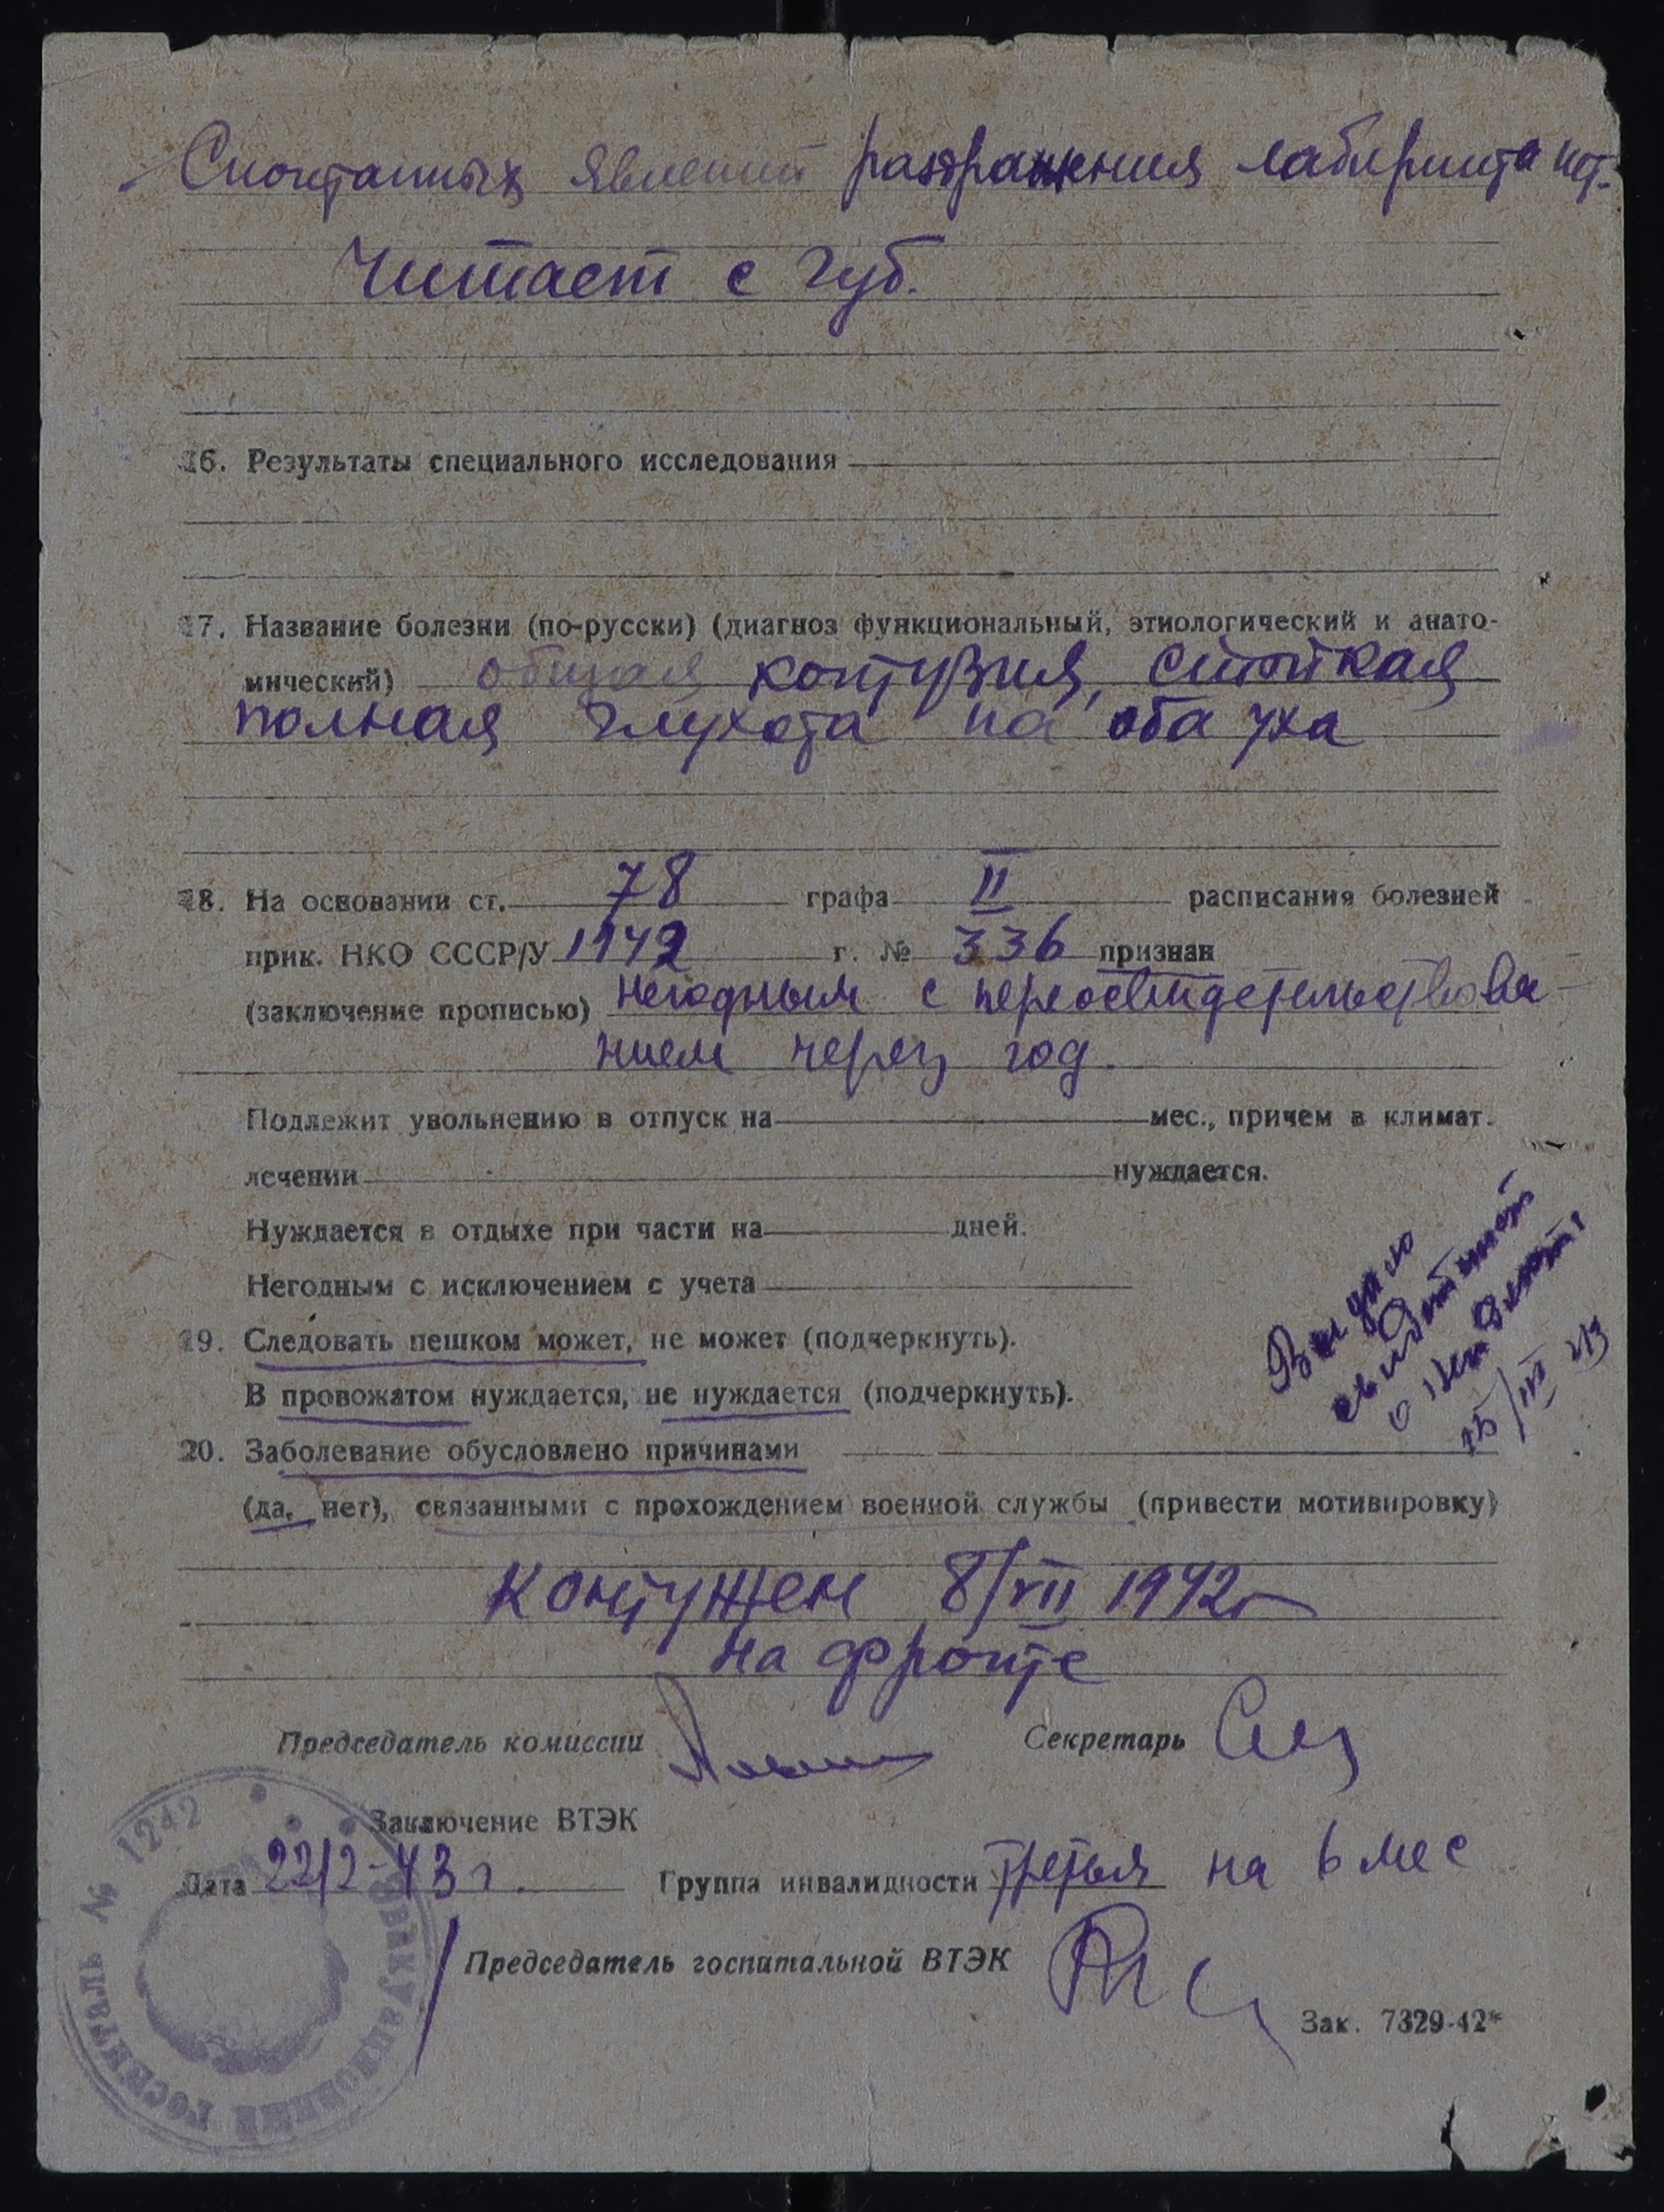 Спонтанных явлений раздражения лабиринта нет.
Читает с губ.
16. Результаты специального исследования
17. Название болезни (по-русски) (диагноз функциональный, этиологический и анато-
мический) общая контузия, стойкая
полная глухота на оба уха
18. На основании ст. 78 графа II расписания болезней
прик. НКО СССР/У 1942 г. № 336 признан
(заключение прописью) негодным с переосвидетельствова-
нием через год.
Подлежит увольнению в отпуск на мес., причем в климат.
лечении нуждается.
Нуждается в отдыхе при части на дней.
Негодным с исключением с учета
19. Следовать пешком может, не может (подчеркнуть).
В провожатом нуждается, не нуждается (подчеркнуть).
20. Заболевание обусловлено причинами
(да, нет), связанными с прохождением военной службы (привести мотивировку)
Контужен 8/VII 1942 г
на фронте
Председатель комиссии Секретарь
Заключение ВТЭК
Дата 22/2-43 г. Группа инвалидности третья на 6 мес
Председатель госпитальной ВТЭК
Зак. 7329-42*
Эвакуационный госпиталь № 1242
15/III 43